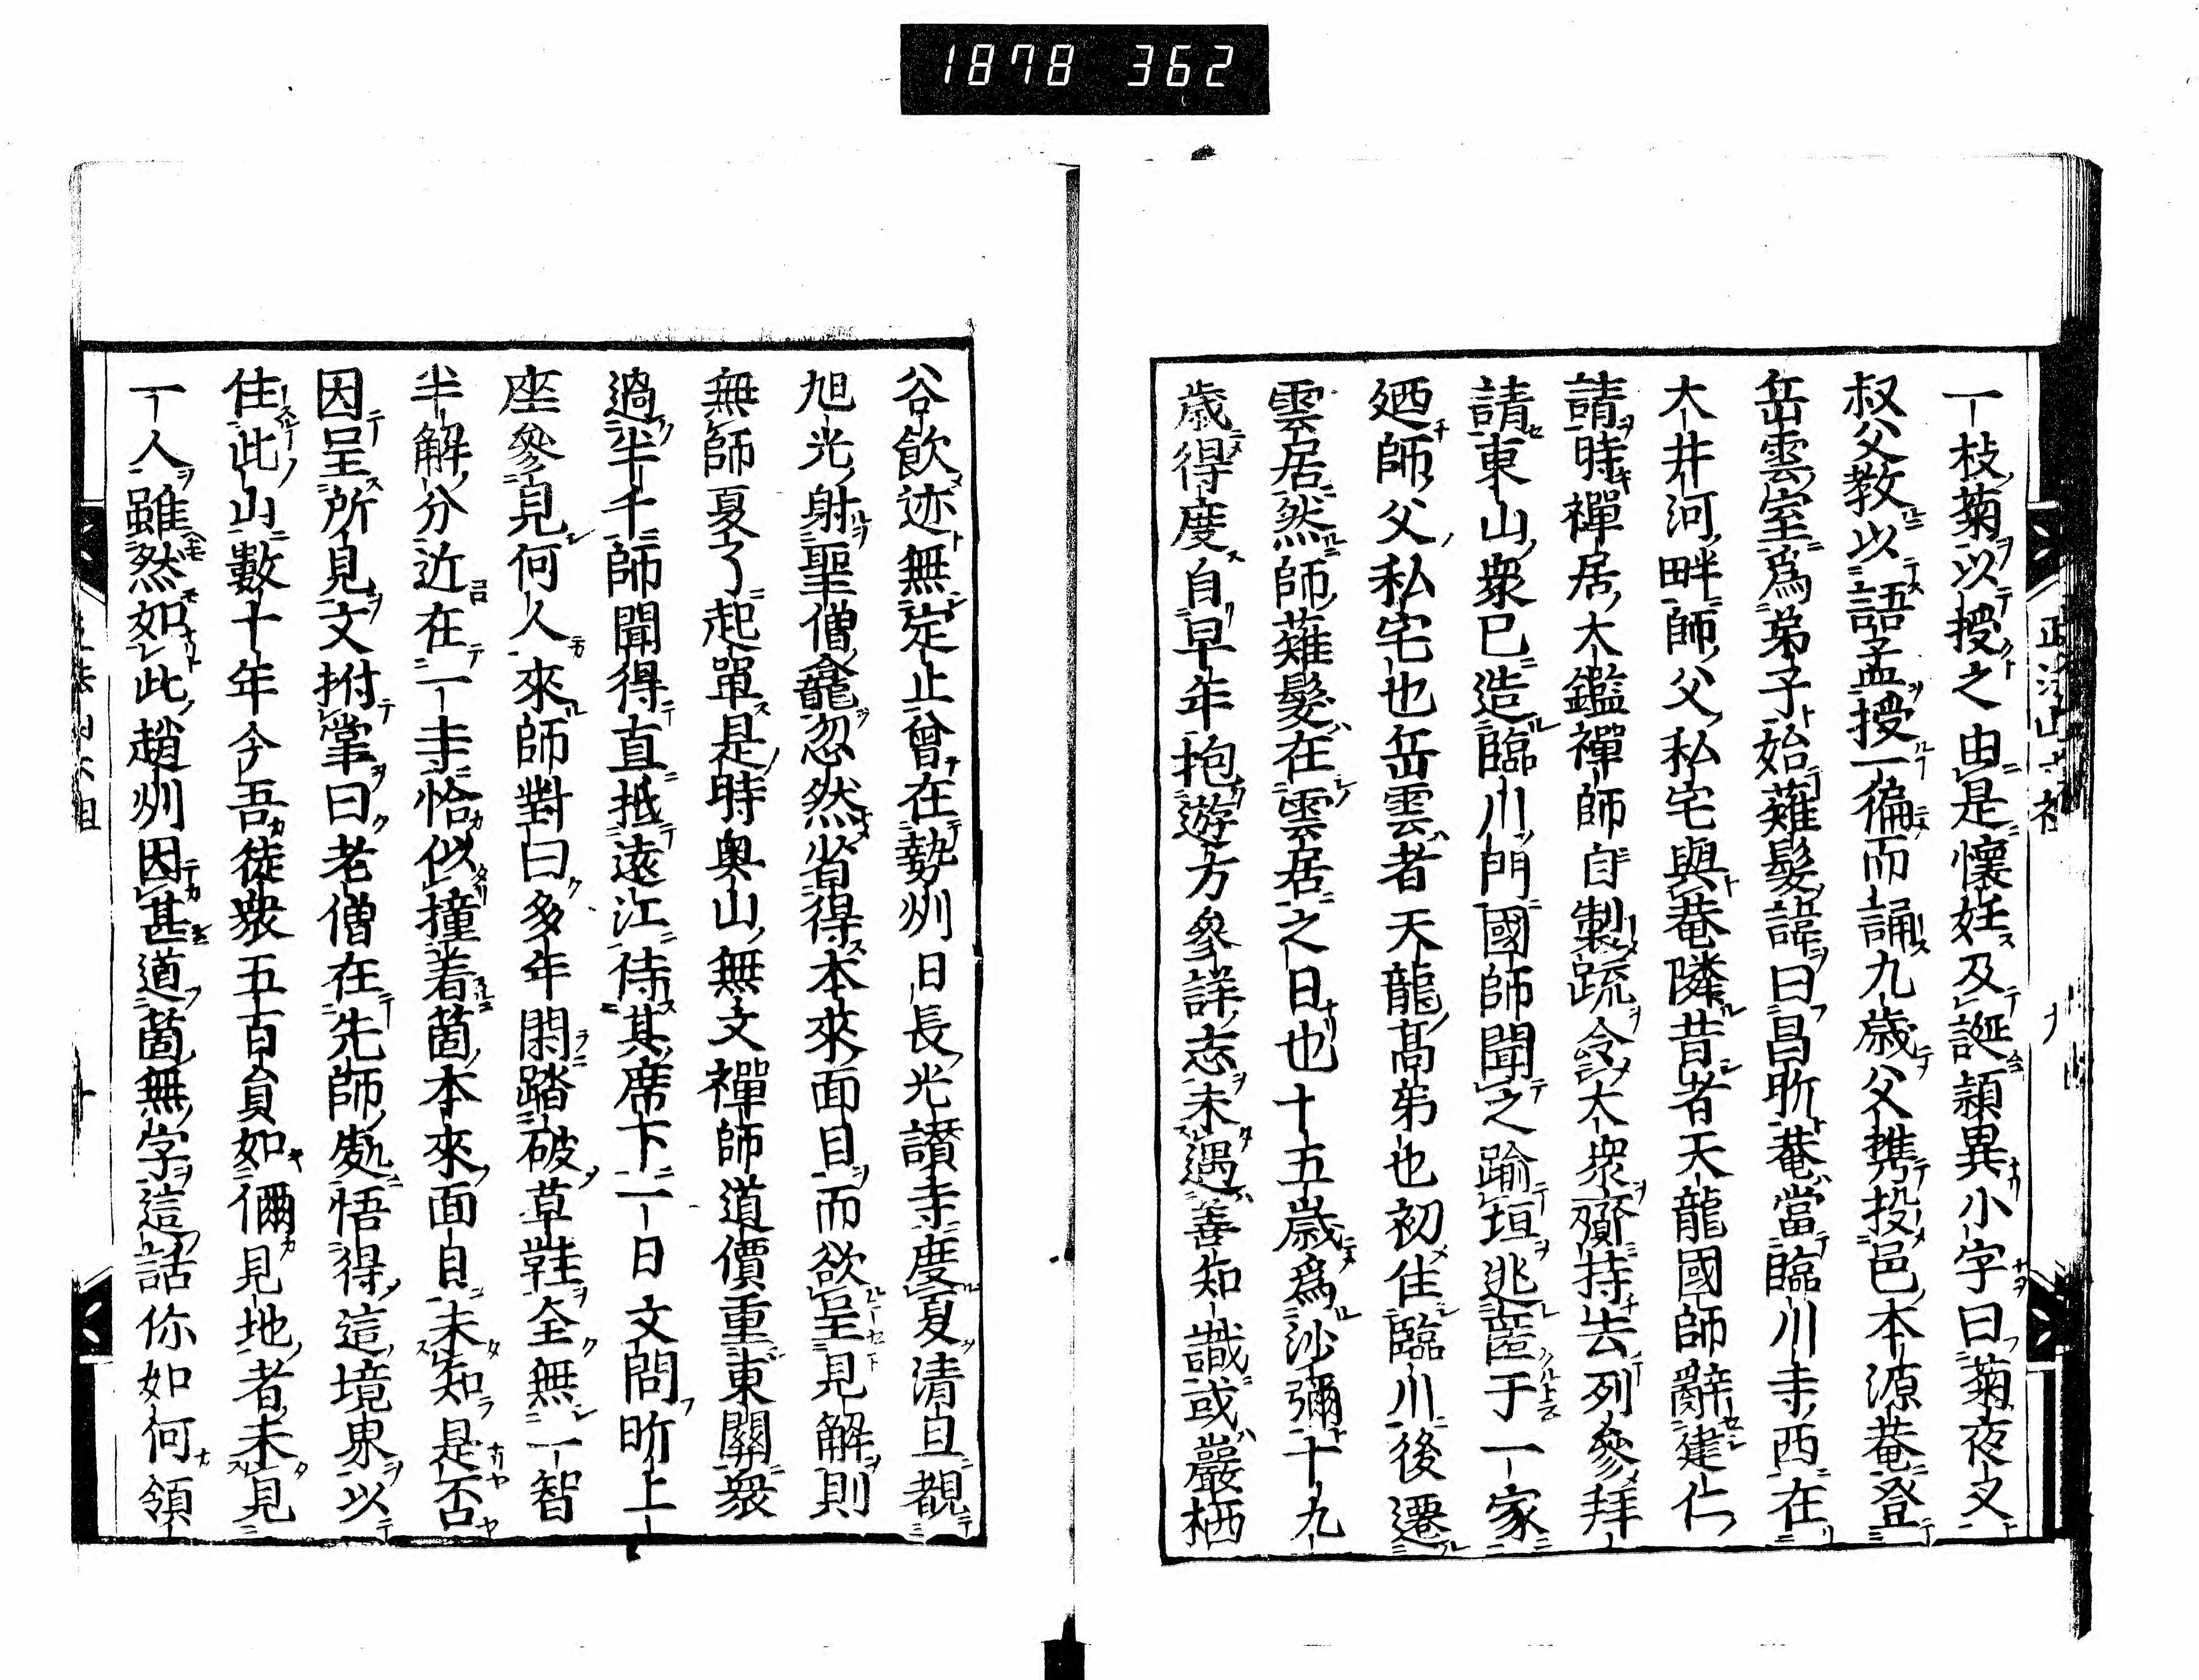 1878 362
一枝菊以授之由是懷妊及誕頴異小字曰菊夜叉
叔父教以語孟授一徧而誦九歳父携投邑本源菴登
岳雲室爲弟子始薙髮諱曰昌昕菴當臨川寺西在
大井河畔師父私宅與菴隣昔者天龍國師辭建仁
請時禪居大鑑禪師自製䟽令大衆齎持去列參拜
請東山衆已造臨川門國師聞之踰垣逃匿于一家
廼師父私宅也岳雲者天龍髙弟也初住臨川後遷
雲居然師薙髮在雲居之日也十五歳爲沙彌十九
歳得度自早年抱遊方參詳志未遇善知識或嚴栖
谷飲迹無定止曾在勢州日長光讃寺度夏清旦覩
旭光射聖僧龕忽然省得本來面目而欲呈見解則
無師夏了起單是時奥山無文禪師道價重東關衆
過半千師聞得直抵遠江待其席下一日文問昕上
座參見何人來師對曰多年閑踏破草鞋全無一智
半解分近在一寺恰似撞着箇本來面目未知是否
因呈所見文拊掌曰老僧在先師處悟得這境界以
住此山數十年今吾徒衆五百員如儞見地者未見
一人雖然如此趙州因甚道箇無字這話你如何領